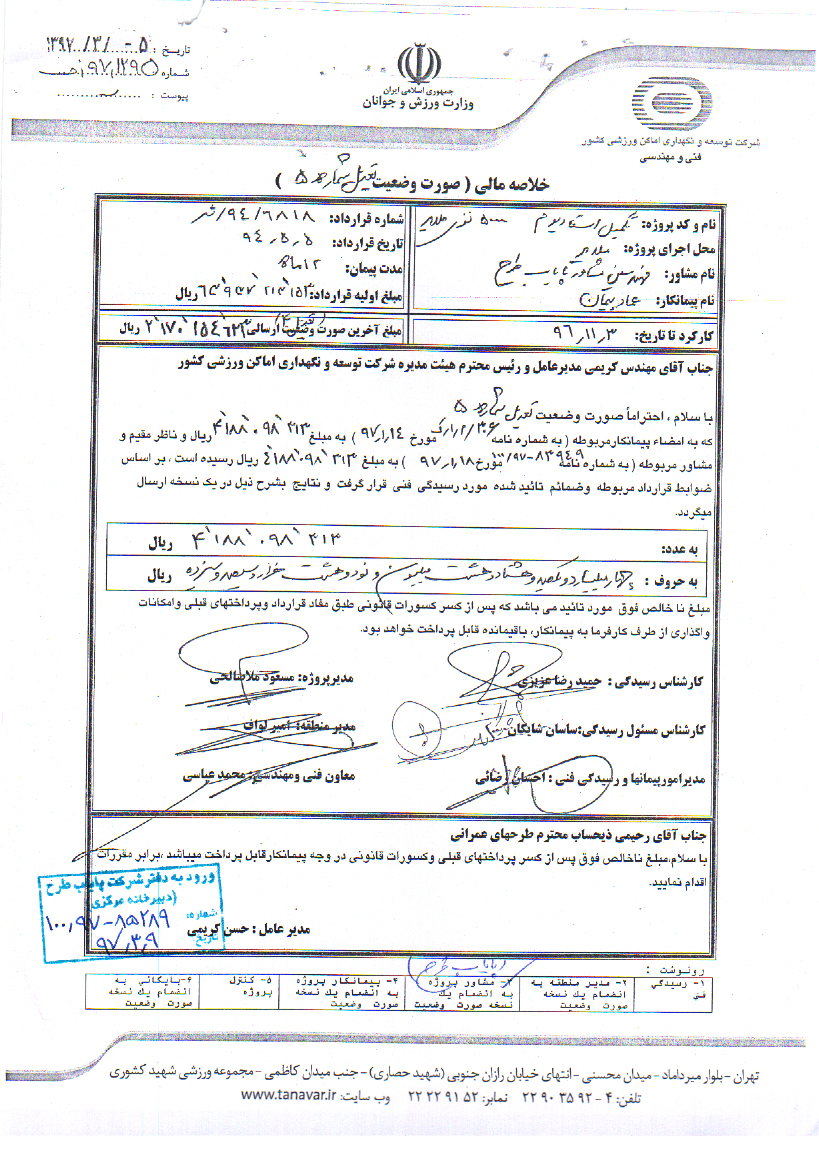 تاریخ : ۱۳۹۷/۳/۰۵
شماره ۹۷/۱۲۹۵
پیوست :
جمهوری اسلامی ایران
وزارت ورزش و جوانان
شرکت توسعه و نگهداری اماکن ورزشی کشور
فنی و مهندسی
خلاصه مالی ( صورت وضعیت تعدیل شماره ۵ )
نام و کد پروژه: تکمیل استادیوم ۵۰۰۰ نفری ملایر
شماره قرارداد: ۹۴/۶۸۱۸/ش
محل اجرای پروژه: ملایر
تاریخ قرارداد: ۹۴,۵,۵
نام مشاور: مهندسین مشاور پایاب طرح
مدت پیمان: ۱۲ ماه
نام پیمانکار: عماد پیمان
مبلغ اولیه قرارداد: ریال
کارکرد تا تاریخ: ۹۶,۱۱,۳
مبلغ آخرین صورت وضعیت ارسالی: (تعدیل ۴) ۲٬۱۷۰٬۱۵۴٬۶۲۳ ریال
جناب آقای مهندس کریمی مدیرعامل و رئیس محترم هیئت مدیره شرکت توسعه و نگهداری اماکن ورزشی کشور
با سلام ، احتراماً صورت وضعیت تعدیل شماره ۵
که به امضاء پیمانکارمربوطه ( به شماره نامه مورخ ۹۷,۱,۱۴ ) به مبلغ ۴٬۱۸۸٬۰۹۸٬۳۱۳ ریال و ناظر مقیم و
مشاور مربوطه ( به شماره نامه ۱۰۰/۹۷-۸۳۹۴۹ مورخ ۹۷,۱,۱۸ ) به مبلغ ۴٬۱۸۸٬۰۹۸٬۳۱۳ ریال رسیده است ، بر اساس
ضوابط قرارداد مربوطه وضمائم تائید شده مورد رسیدگی فنی قرار گرفت و نتایج بشرح ذیل در یک نسخه ارسال
میگردد.
به عدد: ۴٬۱۸۸٬۰۹۸٬۳۱۳ ریال
به حروف : چهار میلیارد و یکصد و هشتاد و هشت میلیون و نود و هشت هزار و سیصد و سیزده ریال
مبلغ نا خالص فوق مورد تائید می باشد که پس از کسر کسورات قانونی طبق مفاد قرارداد وپرداختهای قبلی وامکانات
واگذاری از طرف کارفرما به پیمانکار، باقیمانده قابل پرداخت خواهد بود.
کارشناس رسیدگی : حمید رضا عزیزی
مدیرپروژه: مسعود ملاصالحی
کارشناس مسئول رسیدگی:ساسان شایگان
مدیر منطقه: امیر لواف
مدیرامورپیمانها و رسیدگی فنی : احسان رضائی
معاون فنی ومهندسی: محمد عباسی
جناب آقای رحیمی ذیحساب محترم طرحهای عمرانی
با سلام،مبلغ ناخالص فوق پس از کسر پرداختهای قبلی وکسورات قانونی در وجه پیمانکارقابل پرداخت میباشد ,برابر مقررات
اقدام نمایید.
مدیر عامل : حسن کریمی
ورود به دفتر شرکت پایاب طرح
(دبیرخانه مرکزی)
شماره: ۱۰۰,۹۷-۸۵۲۸۹
تاریخ: ۹۷,۳,۹
رونوشت :
(پایاب طرح)
۱- رسیدگی فنی
۲- مدیر منطقه به انضمام یک نسخه صورت وضعیت
۳- مشاور پروژه به انضمام یک نسخه صورت وضعیت
۴- پیمانکار پروژه به انضمام یک نسخه صورت وضعیت
۵- کنترل پروژه
۶-بایگانی به انضمام یک نسخه صورت وضعیت
تهران - بلوار میرداماد - میدان محسنی - انتهای خیابان رازان جنوبی (شهید حصاری) - جنب میدان کاظمی - مجموعه ورزشی شهید کشوری
تلفن: ۴ - ۹۲ ۳۵ ۹۰ ۲۲ نمابر: ۵۲ ۹۱ ۲۲ ۲۲ وب سایت: www.tanavar.ir